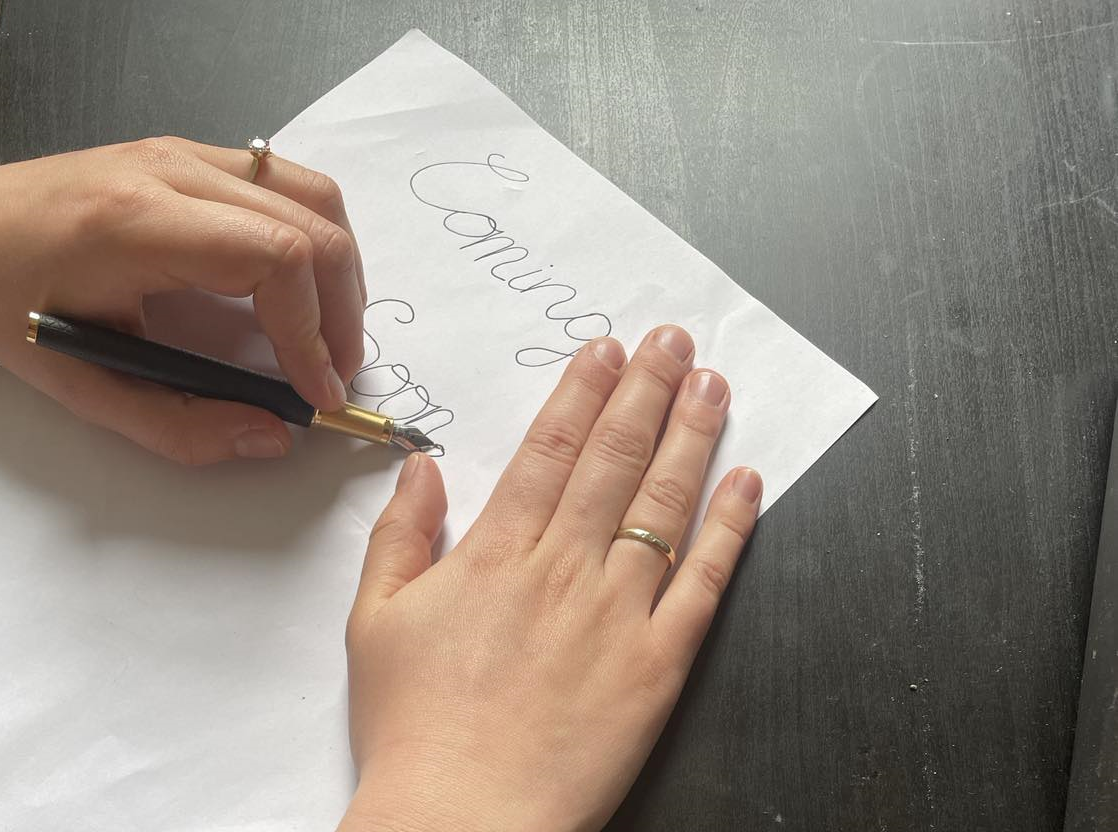 Coming
Soon